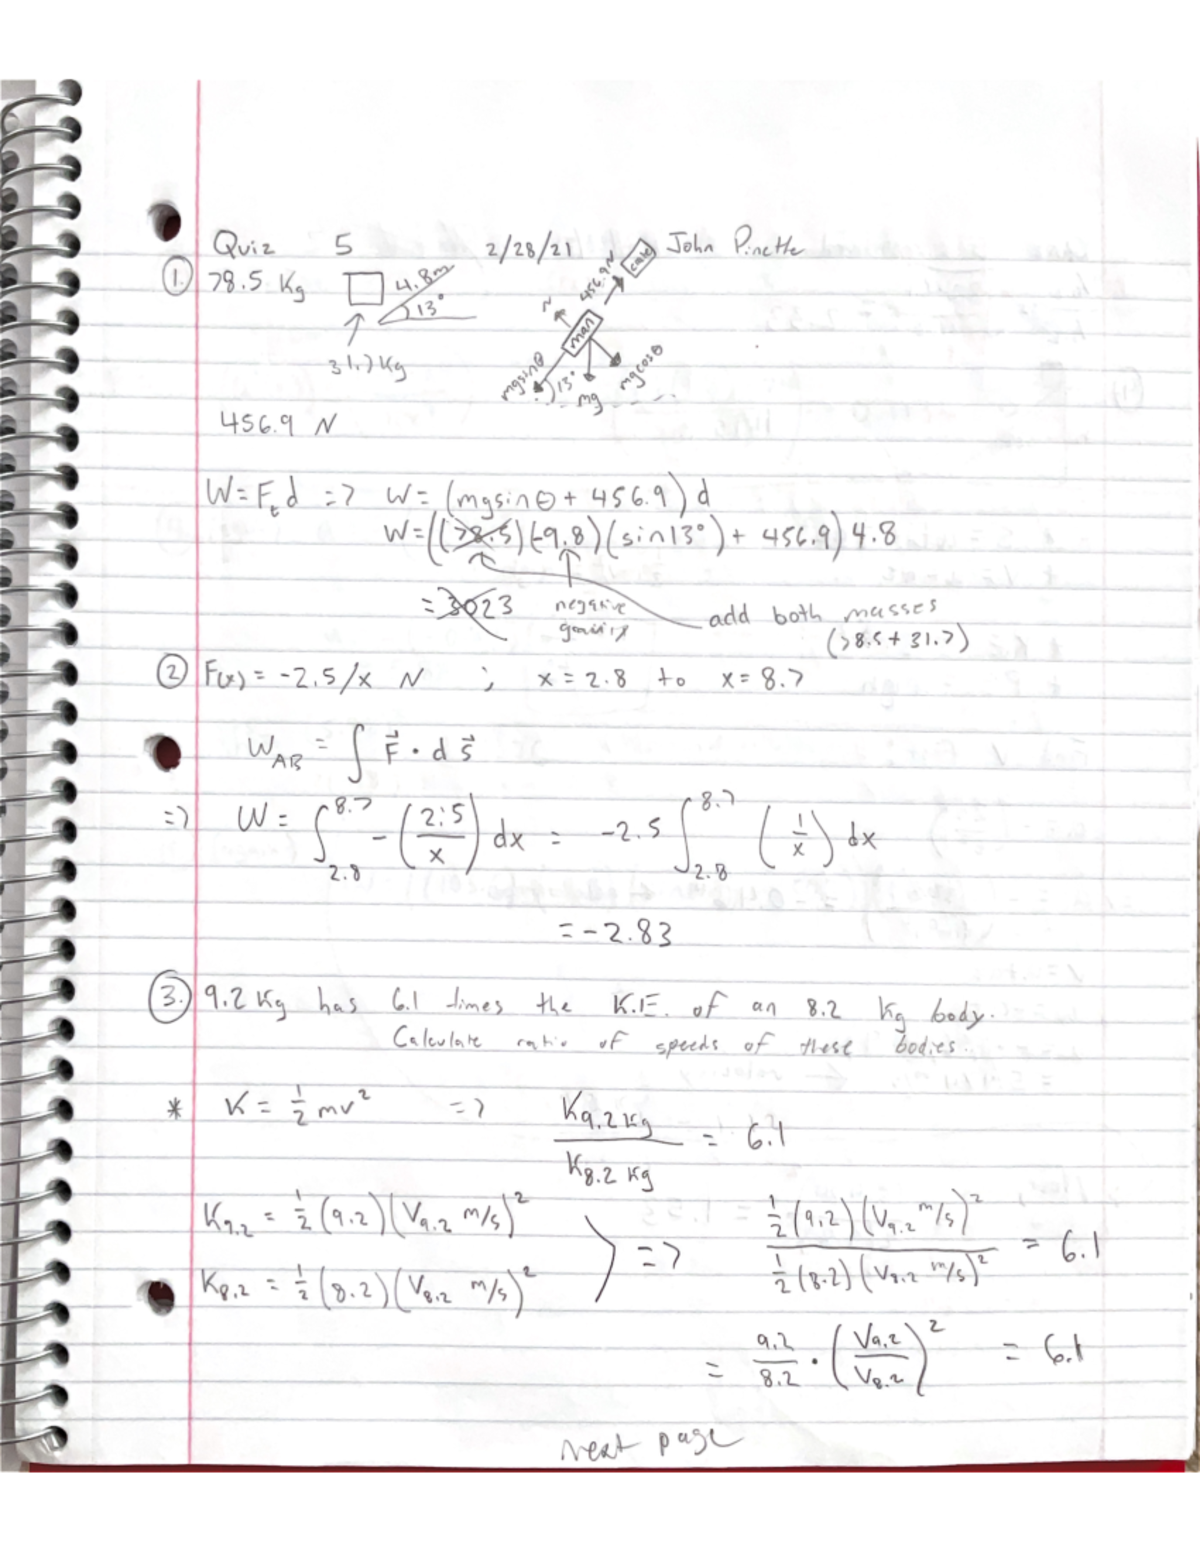 Quiz 5 2/28/21 John Pinette
1. 78.5 Kg 4.8m 13°
31.7 Kg
N 456.9N
man
mgsinθ 13° mg mgcosθ
456.9 N
W = F_t d => W = (mgsinθ + 456.9) d
W = ((78.5)(-9.8)(sin13°) + 456.9) 4.8
= 3023 negative gravity add both masses
(78.5 + 31.7)
2 F(x) = -2.5/x N ; x = 2.8 to x = 8.7
W_AB = ∫ F⃗ · d s⃗
=> W = ∫_2.8^8.7 -(2.5/x) dx = -2.5 ∫_2.8^8.7 (1/x) dx
= -2.83
3. 9.2 Kg has 6.1 times the K.E. of an 8.2 Kg body.
Calculate ratio of speeds of these bodies.
* K = 1/2 mv² => K9.2 kg / K8.2 kg = 6.1
K9.2 = 1/2 (9.2)(V9.2 m/s)²
K8.2 = 1/2 (8.2)(V8.2 m/s)² => 1/2 (9.2)(V9.2 m/s)² / 1/2 (8.2)(V8.2 m/s)² = 6.1
= 9.2/8.2 · (V9.2/V8.2)² = 6.1
Next page